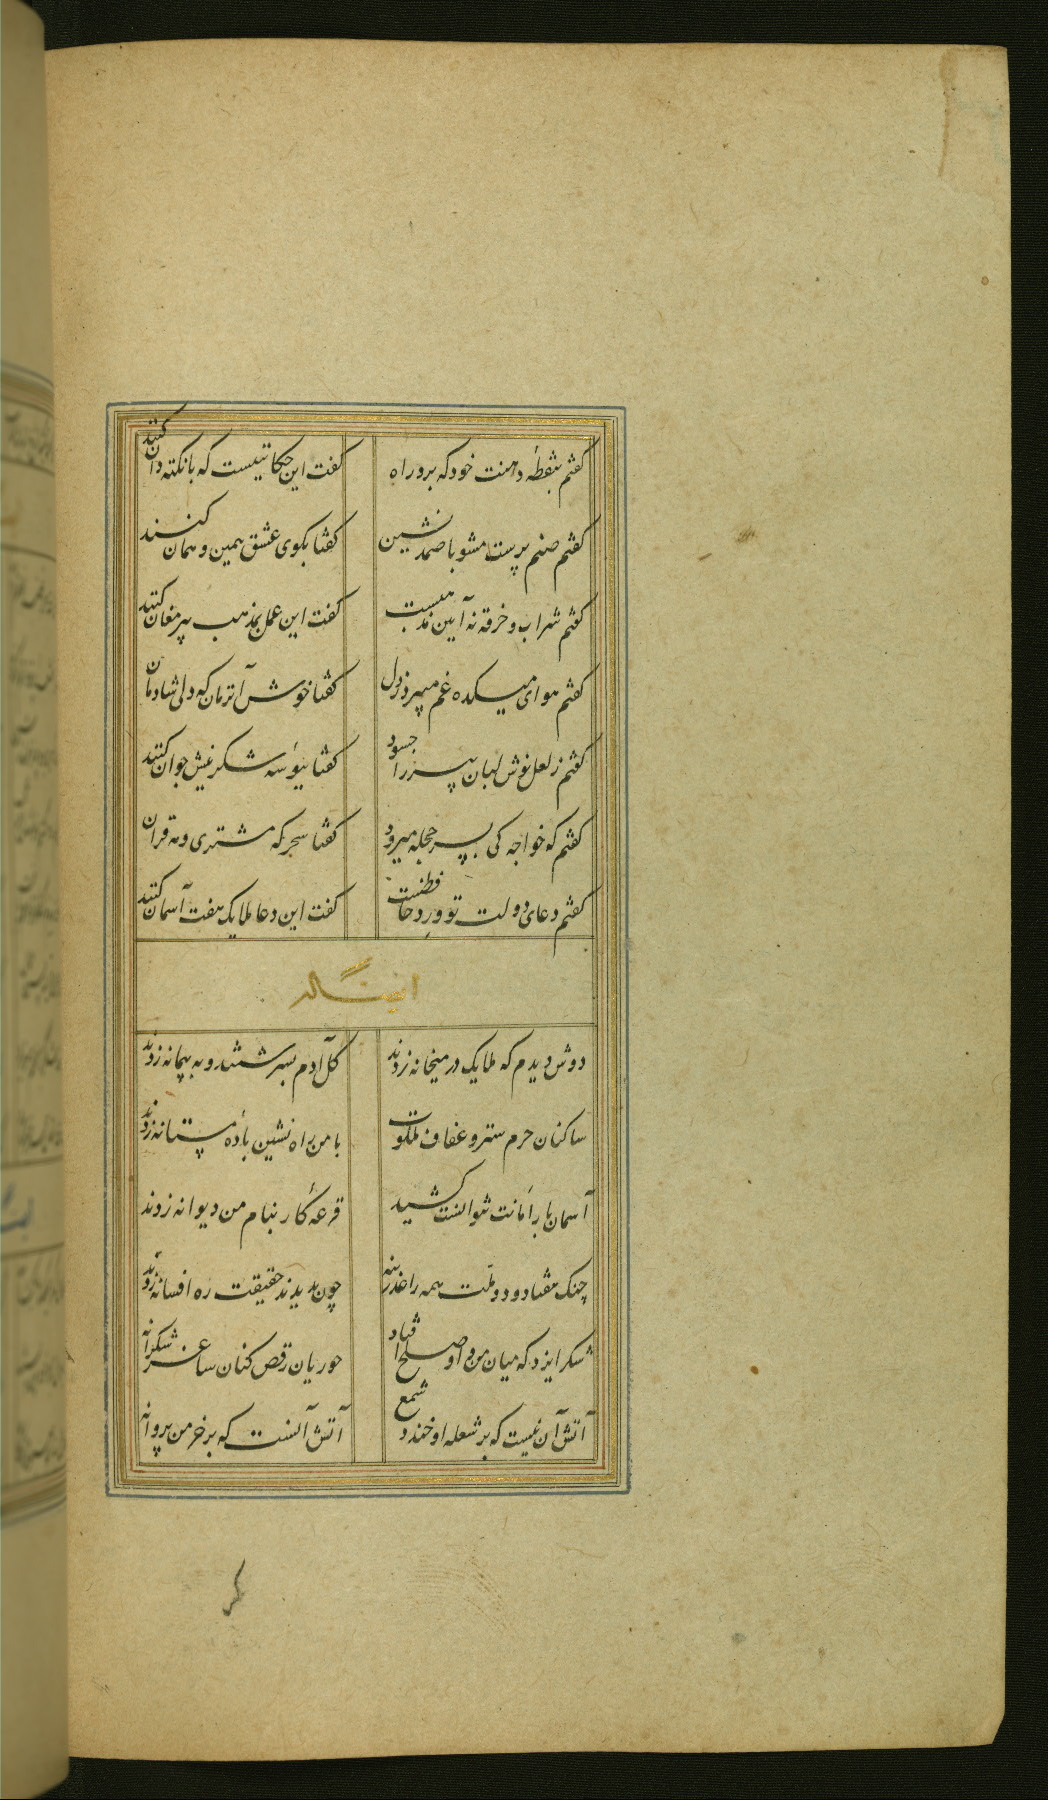 گفتم بنقطهٔ دهنت خود که برد راه گفت این حکایتیست که با نکته دان کنند
گفتم صنم پرست مشو با صمد نشین گفتا بکوی عشق همین و همان کنند
گفتم شراب و خرقه نه آیین مذهبست گفت این عمل بمذهب پیر مغان کنند
گفتم هوای میکده غم میبرد ز دل گفتا خوش آنزمان که دلی شادمان
گفتم ز لعل نوش لبان پیر را چسود گفتا ببوسهٔ شکرینش جوان کنند
گفتم که خواجه کی بسر حجله میرود گفتا سحر که مشتری و مه قران
گفتم دعای دولت تو ورد حافظست گفت این دعا ملایک هفت آسمان کنند
ایضاً له
دوش دیدم که ملایک در میخانه زدند گل آدم بسرشتند و به پیمانه زدند
ساکنان حرم ستر و عفاف ملکوت با من راه نشین بادهٔ مستانه زدند
آسمان بار امانت نتوانست کشید قرعهٔ کار بنام من دیوانه زدند
جنک هفتاد و دو ملت همه را عذر بنه چون ندیدند حقیقت ره افسانه زدند
شکر ایزد که میان من و او صلح افتاد حوریان رقص کنان ساغر شکرانه
آتش آن نیست که بر شعله او خندد شمع آتش آنست که بر خرمن پروانه